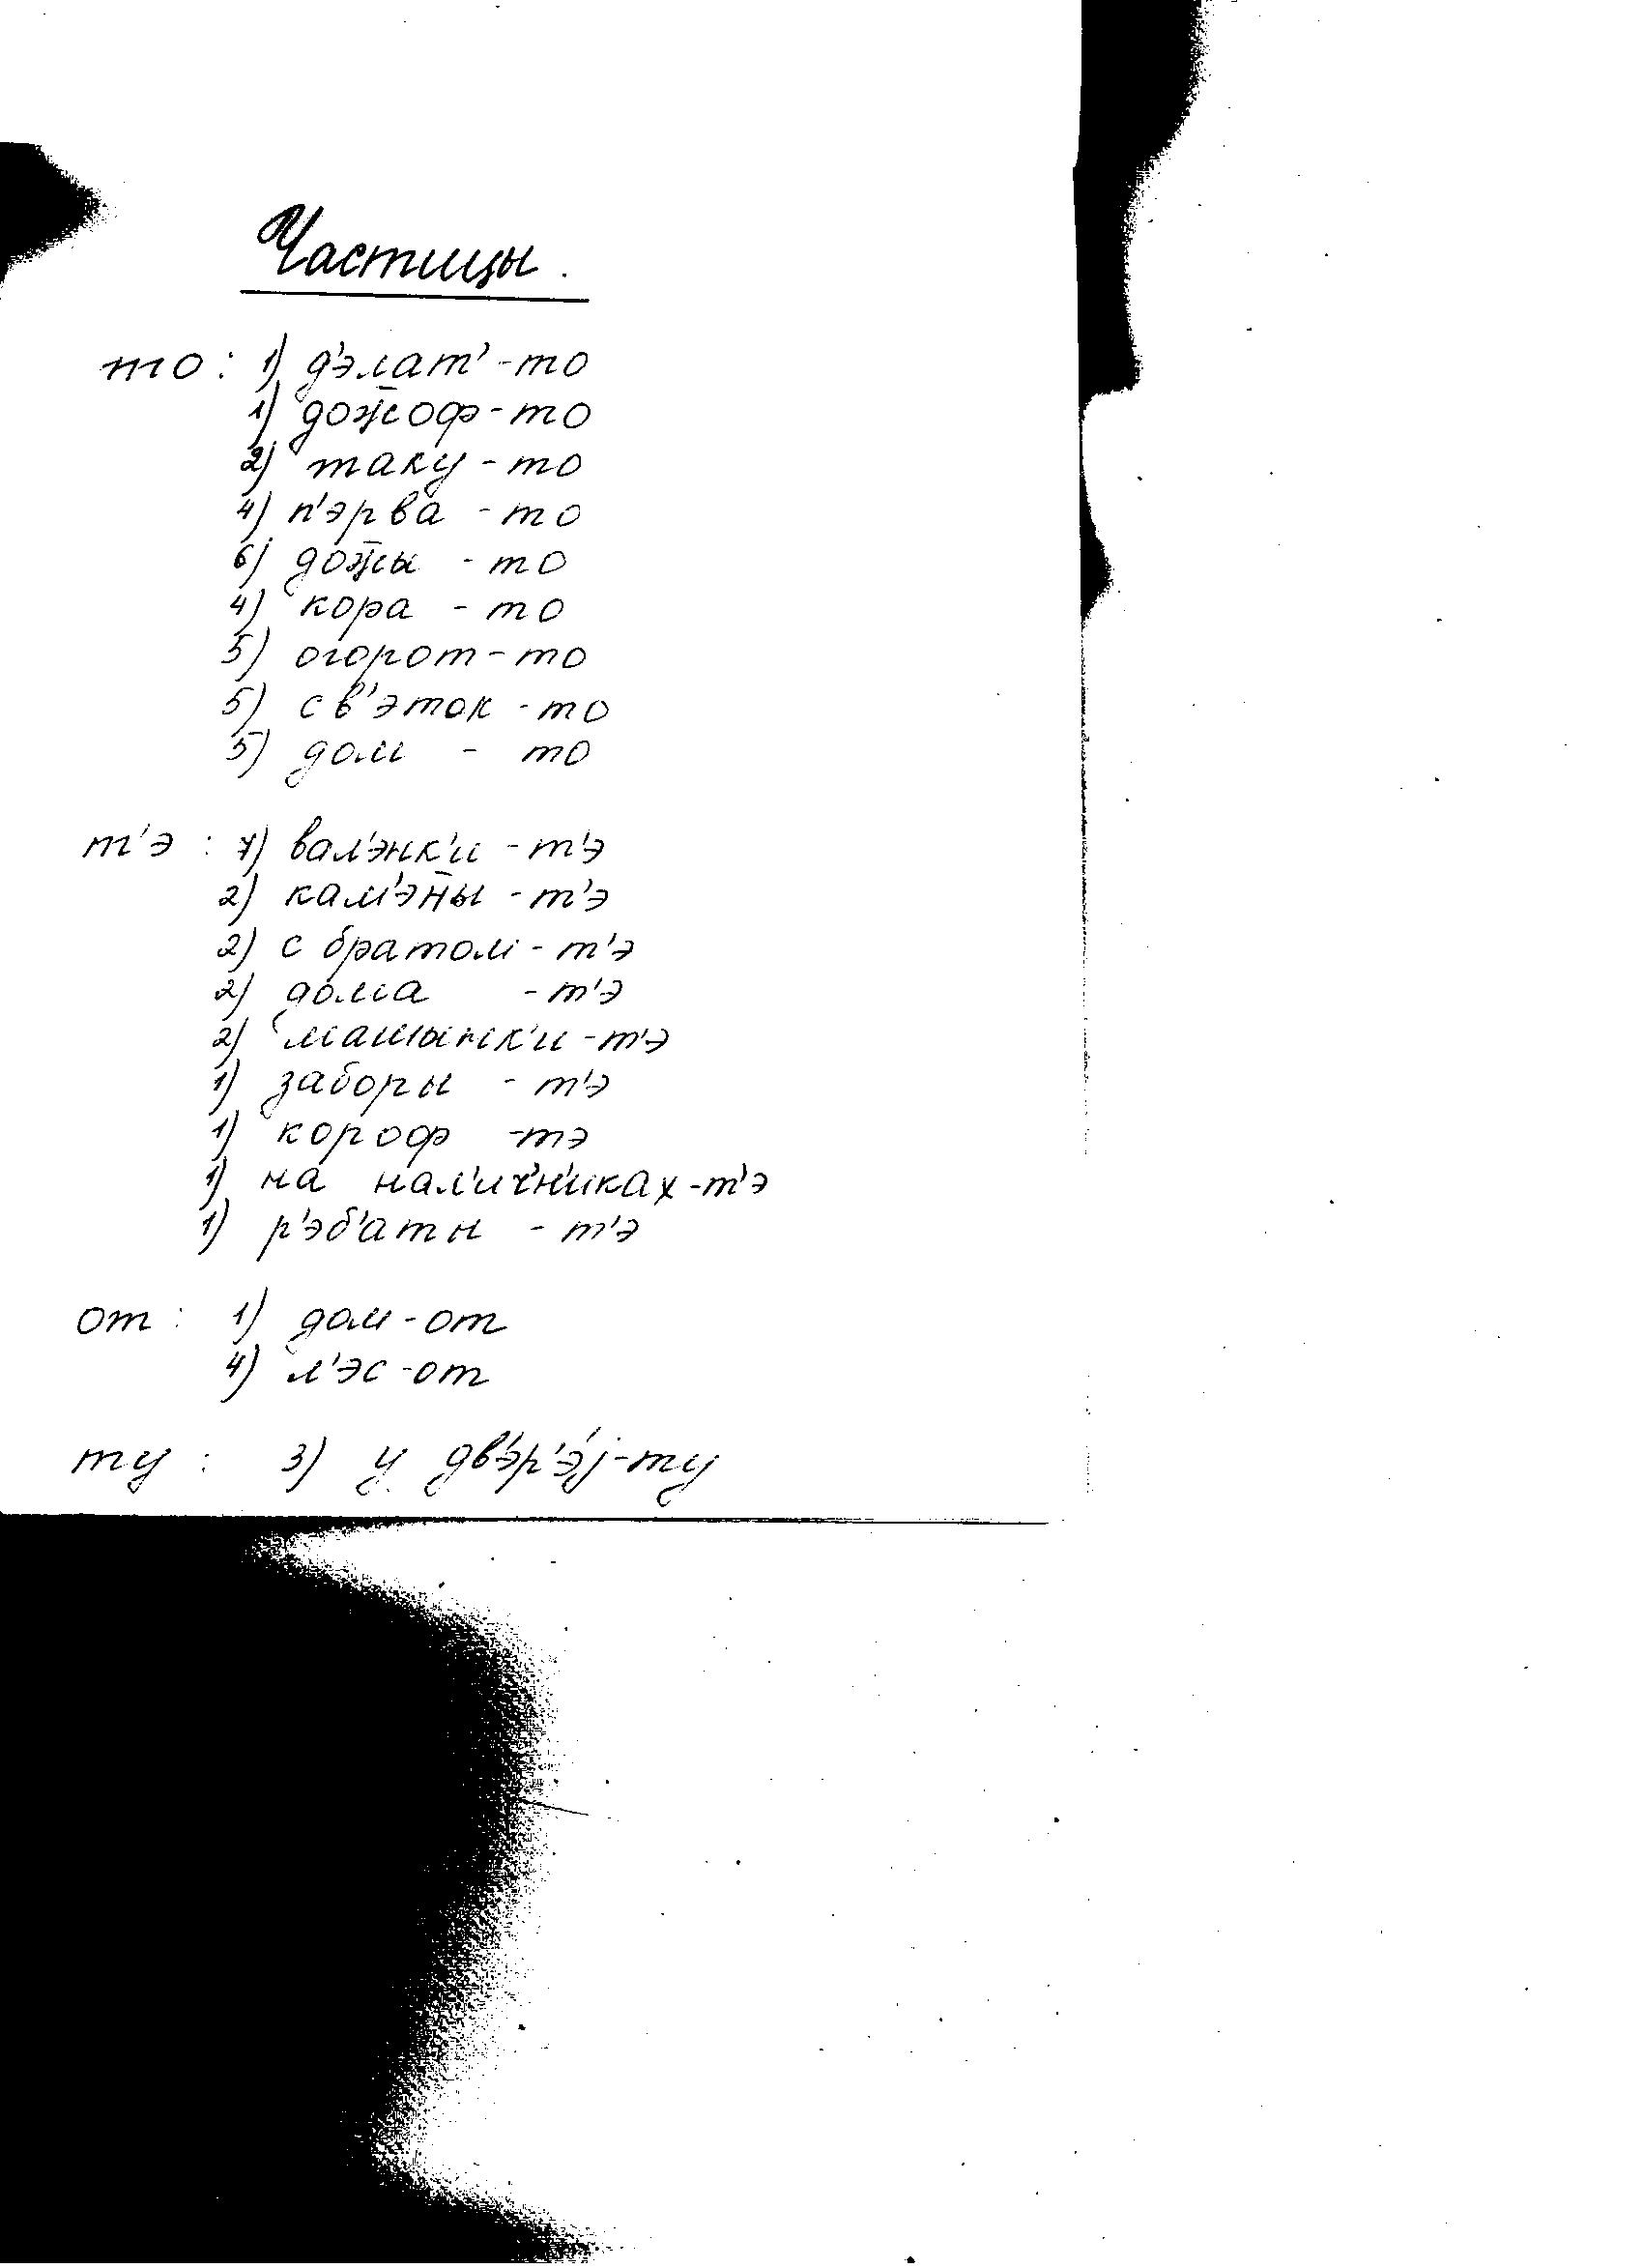 Частицы.
то: 1) д'элат'-то
1) дож̄оф-то
2) таку-то
4) п'эрва-то
6) дож̄ы-то
4) кора-то
5) огорот-то
5) св'эток-то
5) дом-то
т'э: 7) вал'энк'и-т'э
2) кам'эн̄ы-т'э
2) с братом-т'э
2) дома-т'э
2) машынк'и-т'э
1) заборы-т'э
1) короф-тэ
1) на нал'ич'н'иках-т'э
1) р'эб'аты-т'э
от: 1) дом-от
4) л'эс-от
ту: 3) у дв'эр'э́j-ту